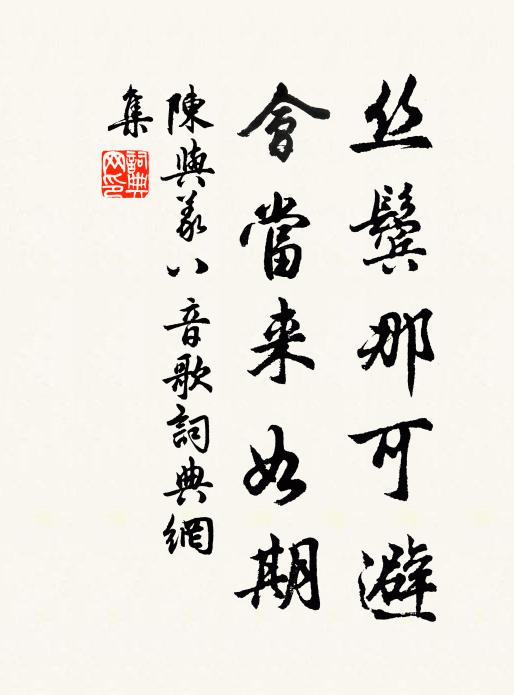 丝鬓那可避
會當来如期
陳與義八音歌詞典網
集
詞典
网印